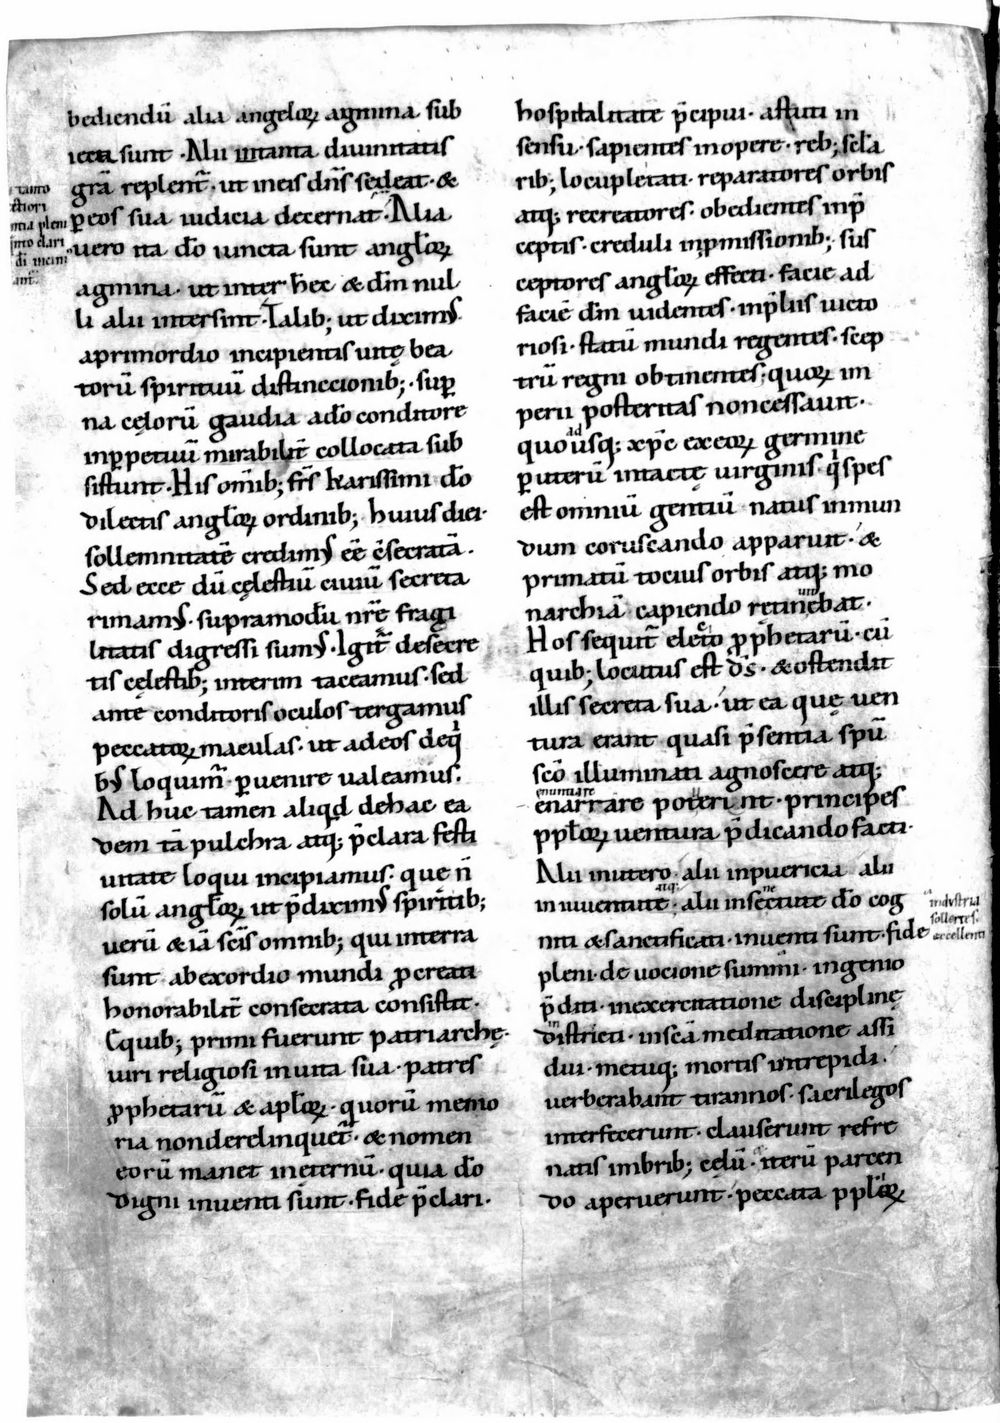 bediendū alia angeloꝝ agmina sub
iecta sunt · Alii in tanta divinitatis
grā replent̄ · ut in eis dn̄s sedeat · &
ꝑ eos sua iudicia decernat · Alia
uero ita dō iuncta sunt angl̄oꝝ
agmina · ut inter hec & dm̄ nul
li alii intersint · Talib; ut diximꝰ
a primordio incipientis uitę bea
torū spirituū distinccionib; · suꝑ
na cęlorū gaudia a dō conditore
in ꝑpetuū mirabilit̄ collocata sub
sistunt · His om̄ib; fr̄s karissimi dō
dilectis angl̄oꝝ ordinib; huius diei ·
sollemnitatē credimꝰ eē c̄secratā ·
Sed ecce dū cęlestiū ciuiū secreta
rimamꝰ · supra modū nr̄ę fragi
litatis digressi sumꝰ · Igit̄ de secre
tis cęlestib; interim taceamus · sed
ante conditoris oculos tergamus
peccatoꝝ maculas · ut ad eos de qͥ
bꝰ loquim̄ ꝑuenire ualeamus ·
Ad huc tamen aliqd̄ de hac ea
dem tā pulchra atq; p̄clara festi
uitate loqui incipiamus · que n̄
solū angl̄oꝝ ut p̄diximꝰ spiritib;
uerū & iā sc̄is omnib; qui in terra
sunt ab exordio mundi ꝓcreati
honorabilit̄ consecrata consistit ·
E quib; primi fuerunt patriarchę ·
uiri religiosi in uita sua · patres
ꝓphetarū & apl̄oꝝ · quorū memo
ria non derelinquet̄ · & nomen
eorū manet in eternū · quia dō
digni inuenti sunt · fide p̄clari ·
hospitalitatē p̄cipui · astuti in
sensu · sapientes in opere · reb; scl̄a
rib; locupletati · reparatores orbis
atq; recreatores · obedientes in p̄
ceptis · creduli in ꝓmissionib; sus
ceptores angl̄oꝝ effecti · facie ad
faciē dm̄ uidentes · in p̄liis uicto
riosi · statū mundi regentes · scep
trū regni obtinentes · quoꝝ im
perii posteritas non cessauit ·
quo ad usq; xp̄c ex eoꝝ germine
ꝑ uterū intactę uirginis · qͥ spes
est omniū gentiū natus in mun
dum coruscando apparuit · &
primatū tocius orbis atq; mo
narchiā capiendo retinebat ·
Hos sequit̄ electo ꝓphetarū · cū
quib; locutus est ds̄ · & ostendit
illis secreta sua · ut ea quę uen
tura erant quasi p̄sentia spū
scō illuminati agnoscere atq;
enuntiare
enarrare poterunt · principes
ppl̄oꝝ uentura p̄dicando facti ·
Alii in utero · alii in puericia alii
in iuuentute · atq; alii in senectute dō cog
niti & sanctificati · inuenti sunt · fide
pleni · deuocione summi · ingenio
p̄diti · in exercitatione disciplinę
districti · in scā meditatione assi
dui · metuq; mortis intrepidi ·
uerberabant tirannos · sacrilegos
interfecerunt · clauserunt refre
natis imbrib; cęlū · iterū parcen
do aperuerunt · peccata ppl̄oꝝ
industria
sollertes
excellenti